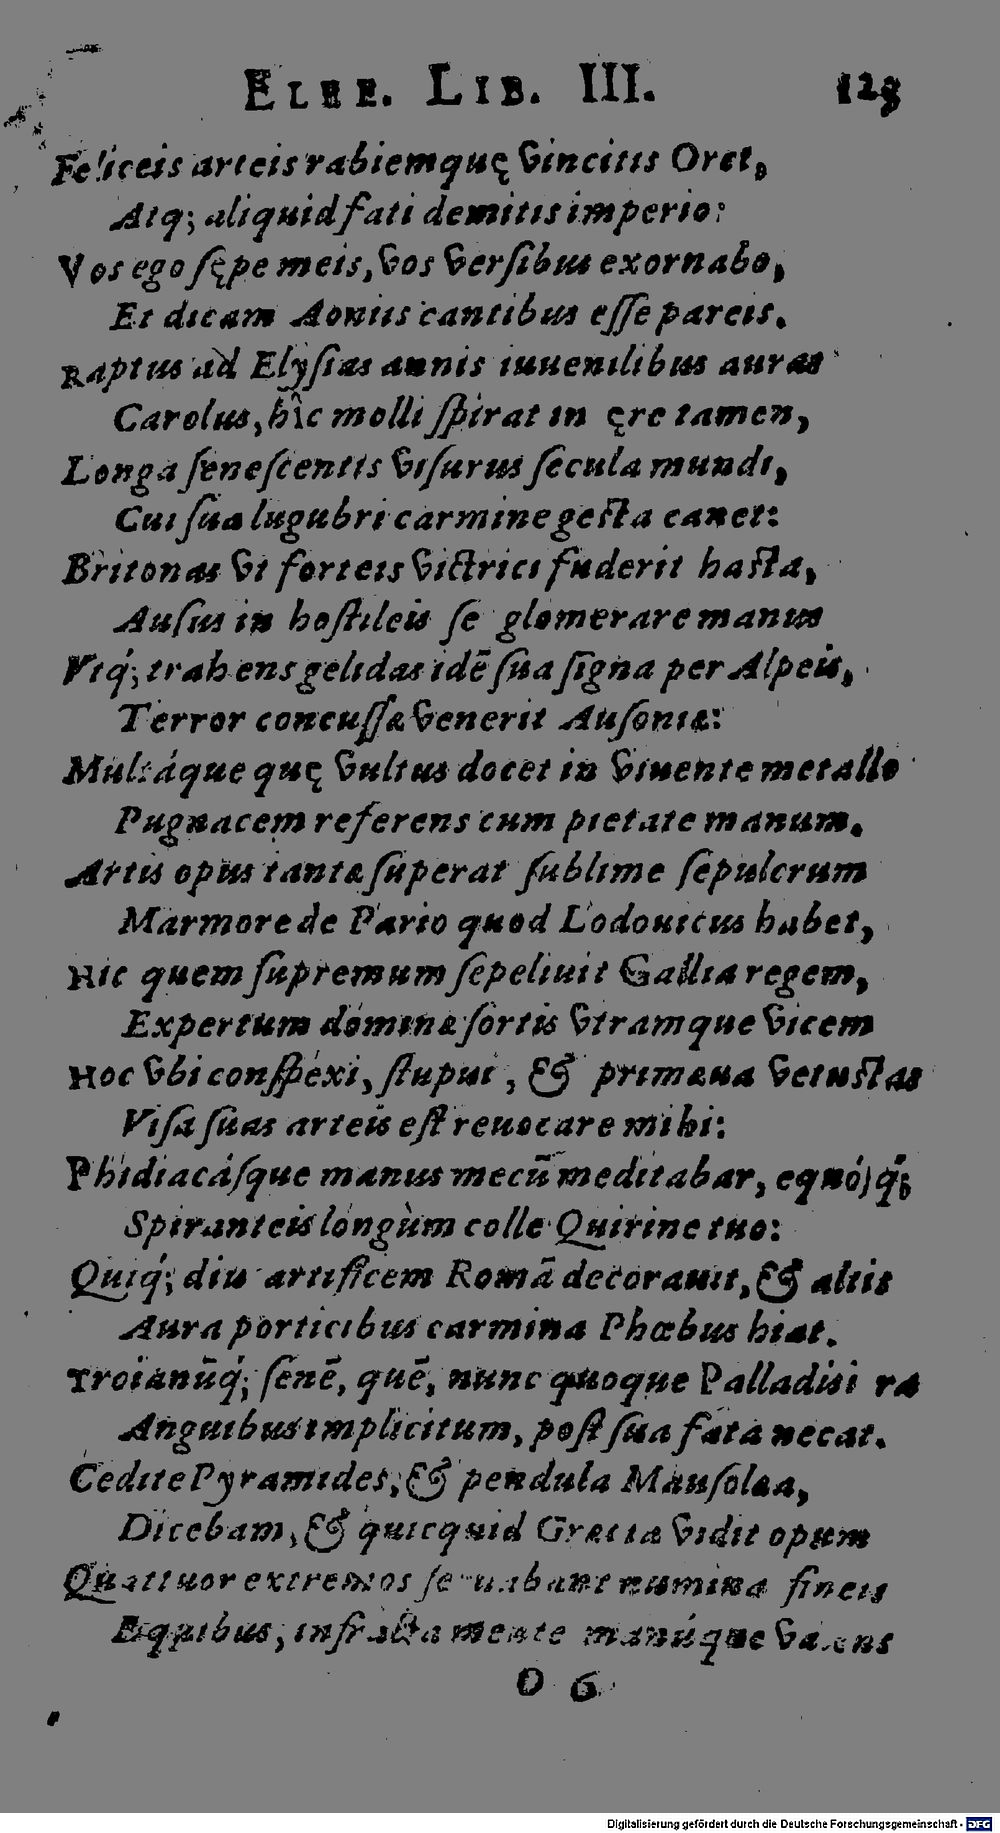 ELEE. LIB. III. 123
Feliceis arteis rabiemquę vincitis Orci,
Atq; aliquid fati demitis imperio:
Vos ego sępe meis, vos versibus exornabo,
Et dicam Aoniis cantibus esse pareis.
Raptus ad Elysias annis iuuenilibus auras
Carolus, hîc molli spirat in ęre tamen,
Longa senescentis visurus secula mundi,
Cui sua lugubri carmine gesta canet:
Britonas vt forteis victrici fuderit hasta,
Ausus in hostileis se glomerare manus
Vtq́; trahens gelidas idē sua signa per Alpeis,
Terror concussæ venerit Ausoniæ:
Multáque quę vultus docet in viuente metallo
Pugnacem referens cum pietate manum.
Artis opus tantæ superat sublime sepulcrum
Marmore de Pario quod Lodouicus habet,
Hic quem supremum sepeliuit Gallia regem,
Expertum dominæ sortis vtramque vicem
Hoc vbi conspexi, stupui, & primæua vetustas
Visa suas arteis est reuocare mihi:
Phidiacásque manus mecū meditabar, equós q́;
Spiranteis longùm colle Quirine tuo:
Quiq́; diu artificem Romā decorauit, & altis
Aura porticibus carmina Phœbus hiat.
Troianūq́; senē, quē, nunc quoque Palladis ira
Anguibus implicitum, post sua fata necat.
Cedite Pyramides, & pendula Mausolæa,
Dicebam, & quicquid Græcia vidit opum
Quattuor extremos seruabant numina fineis
Equibus, infracta mente manúque valens
O 6
Digitalisierung gefördert durch die Deutsche Forschungsgemeinschaft - DFG